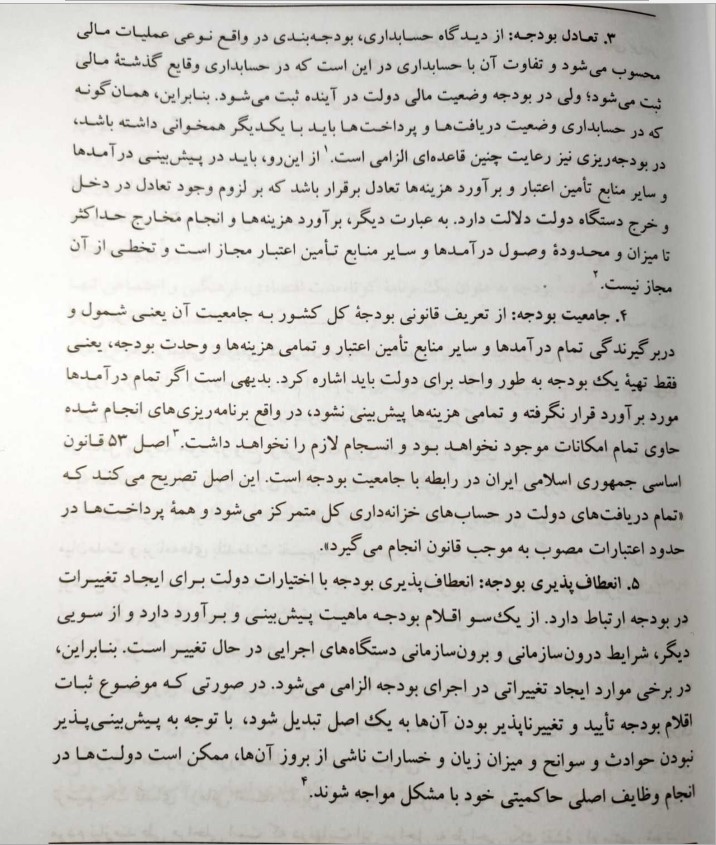 ۳. تعادل بودجه: از دیدگاه حسابداری، بودجه‌بندی در واقع نوعی عملیات مالی
محسوب می‌شود و تفاوت آن با حسابداری در این است که در حسابداری وقایع گذشتهٔ مالی
ثبت می‌شود؛ ولی در بودجه وضعیت مالی دولت در آینده ثبت می‌شود. بنابراین، همان‌گونه
که در حسابداری وضعیت دریافت‌ها و پرداخت‌ها باید با یکدیگر همخوانی داشته باشد،
در بودجه‌ریزی نیز رعایت چنین قاعده‌ای الزامی است.۱ از این‌رو، باید در پیش‌بینی درآمدها
و سایر منابع تأمین اعتبار و برآورد هزینه‌ها تعادل برقرار باشد که بر لزوم وجود تعادل در دخل
و خرج دستگاه دولت دلالت دارد. به عبارت دیگر، برآورد هزینه‌ها و انجام مخارج حداکثر
تا میزان و محدودهٔ وصول درآمدها و سایر منابع تأمین اعتبار مجاز است و تخطی از آن
مجاز نیست.۲
۴. جامعیت بودجه: از تعریف قانونی بودجهٔ کل کشور به جامعیت آن یعنی شمول و
دربرگیرندگی تمام درآمدها و سایر منابع تأمین اعتبار و تمامی هزینه‌ها و وحدت بودجه، یعنی
فقط تهیهٔ یک بودجه به طور واحد برای دولت باید اشاره کرد. بدیهی است اگر تمام درآمدها
مورد برآورد قرار نگرفته و تمامی هزینه‌ها پیش‌بینی نشود، در واقع برنامه‌ریزی‌های انجام شده
حاوی تمام امکانات موجود نخواهد بود و انسجام لازم را نخواهد داشت.۳ اصل ۵۳ قانون
اساسی جمهوری اسلامی ایران در رابطه با جامعیت بودجه است. این اصل تصریح می‌کند که
«تمام دریافت‌های دولت در حساب‌های خزانه‌داری کل متمرکز می‌شود و همهٔ پرداخت‌ها در
حدود اعتبارات مصوب به موجب قانون انجام می‌گیرد».
۵. انعطاف‌پذیری بودجه: انعطاف‌پذیری بودجه با اختیارات دولت برای ایجاد تغییرات
در بودجه ارتباط دارد. از یک‌سو اقلام بودجه ماهیت پیش‌بینی و برآورد دارد و از سویی
دیگر، شرایط درون‌سازمانی و برون‌سازمانی دستگاه‌های اجرایی در حال تغییر است. بنابراین،
در برخی موارد ایجاد تغییراتی در اجرای بودجه الزامی می‌شود. در صورتی که موضوع ثبات
اقلام بودجه تأیید و تغییرناپذیر بودن آن‌ها به یک اصل تبدیل شود، با توجه به پیش‌بینی‌پذیر
نبودن حوادث و سوانح و میزان زیان و خسارات ناشی از بروز آن‌ها، ممکن است دولت‌ها در
انجام وظایف اصلی حاکمیتی خود با مشکل مواجه شوند.۴